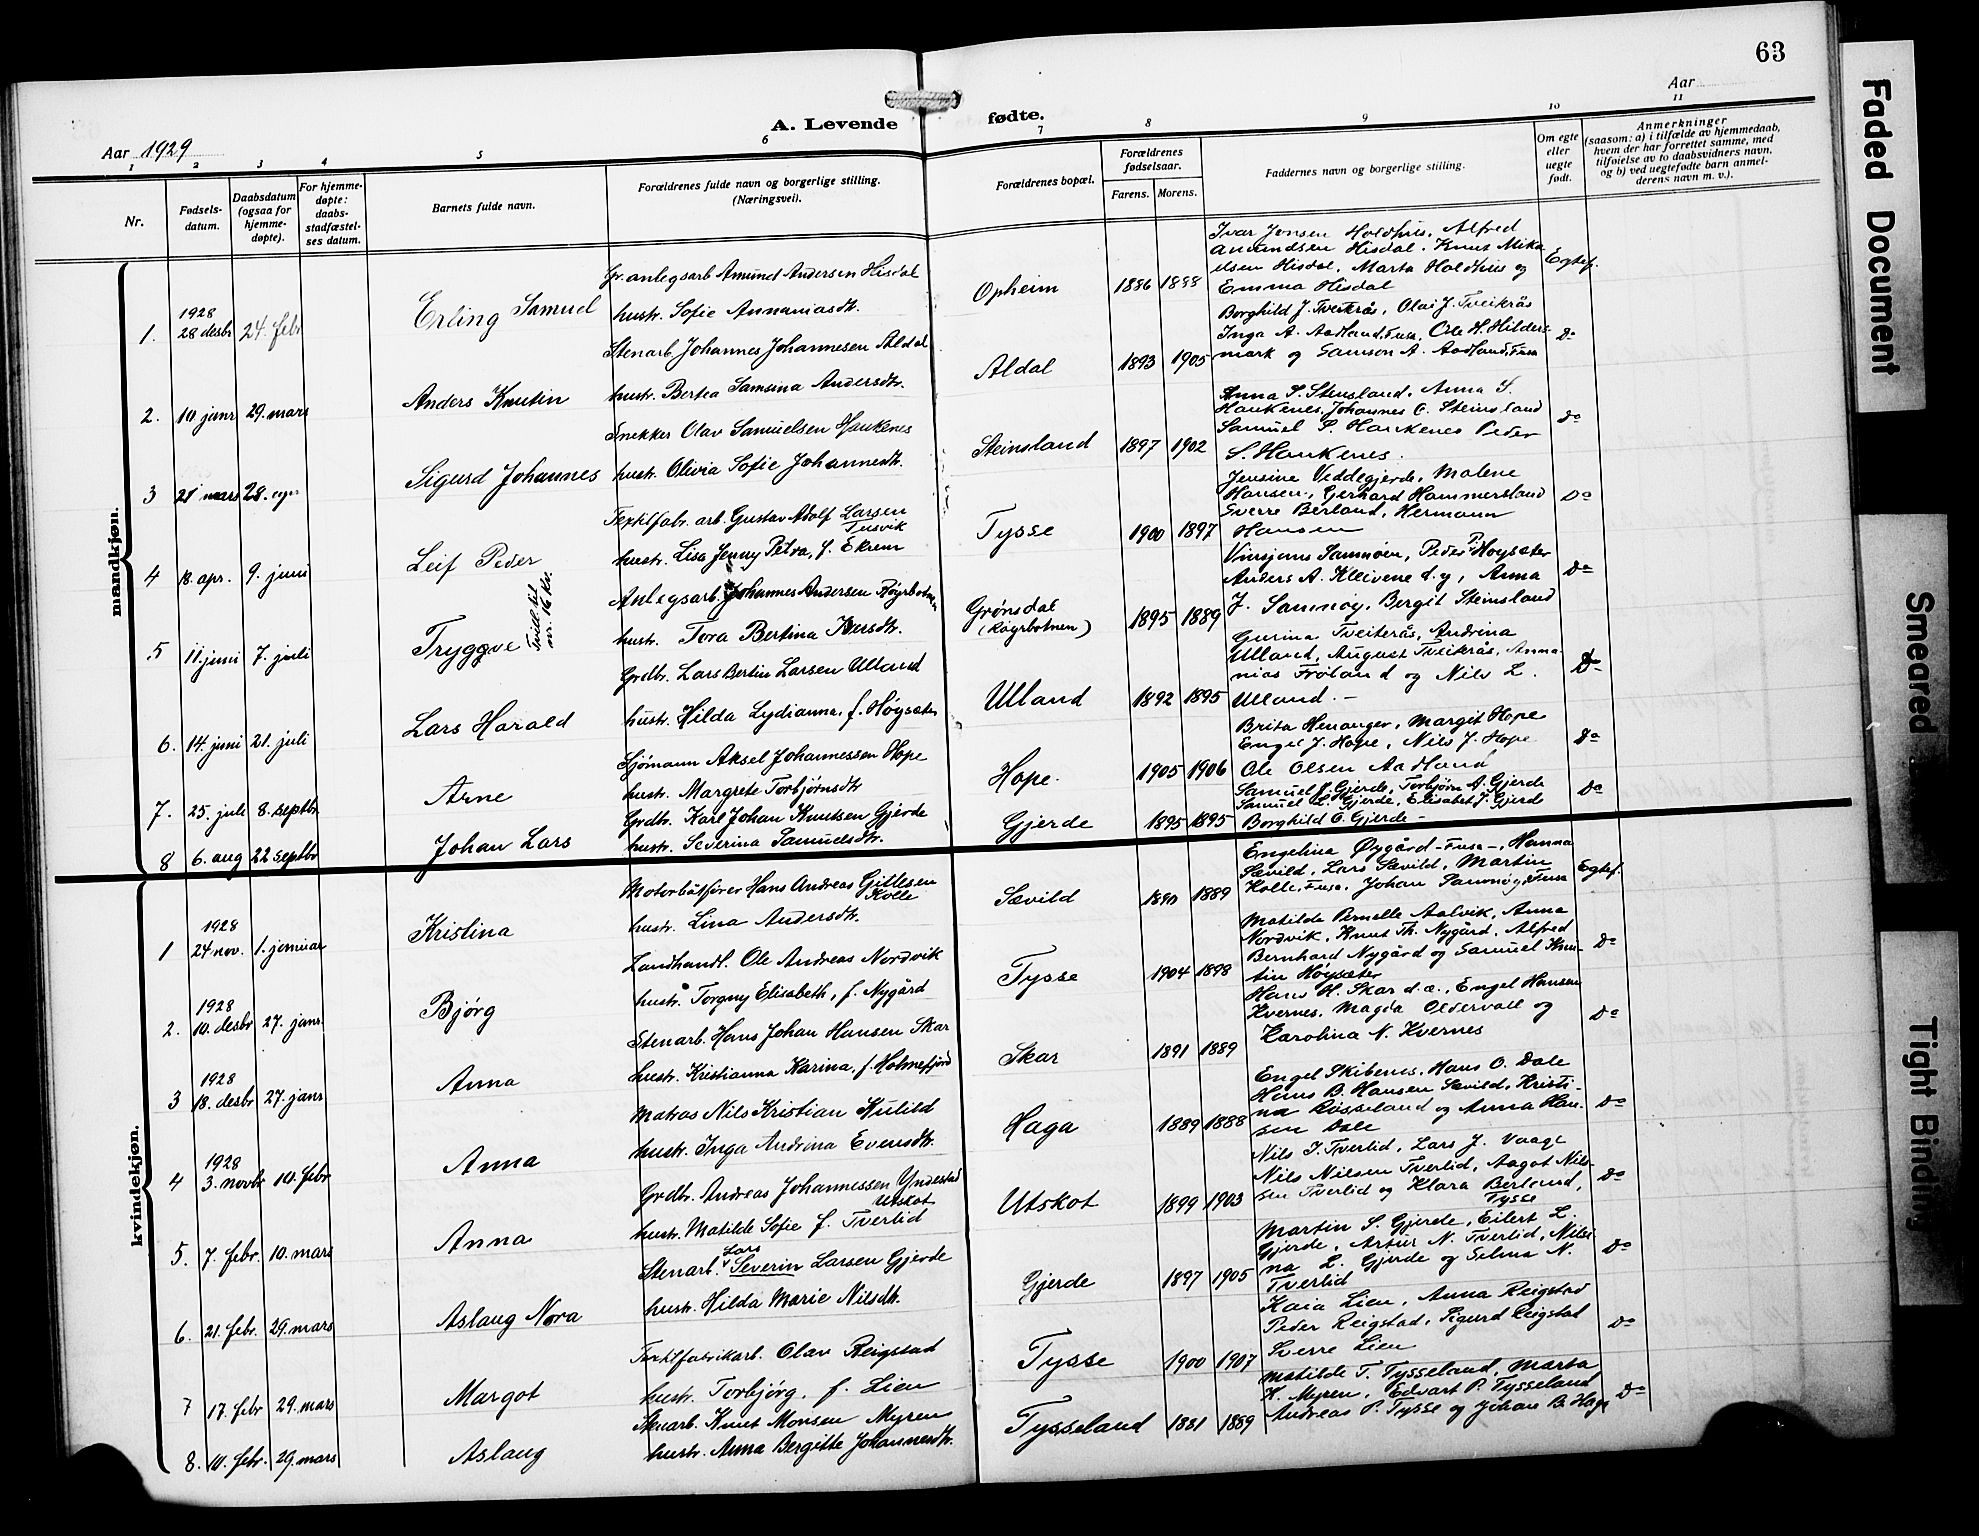 63
Aar 1929
A. Levende
fødte.
Aar
1 2 3 4 5 6 7 8 9 10 11
Nr.
Fødsels-
datum.
Daabsdatum
(ogsaa for
hjemme-
døpte).
For hjemme-
døpte:
daabs-
stadfæstel-
ses datum.
Barnets fulde navn.
Forældrenes fulde navn og borgerlige stilling.
(Næringsvei).
Forældrenes bopæl.
Forældrenes
fødselsaar.
Farens. Morens.
Faddernes navn og borgerlige stilling.
Om egte
eller
uegte
født.
Anmerkninger
(saasom: a) i tilfælde av hjemmedaab,
hvem der har forrettet samme, med
tilføielse av to daabsvidners navn,
og b) ved uegtefødte barn anmel-
derens navn m. v.).
mandkjøn.
1. 1928 28 desbr 24. febr Erling Samuel
Gr. anlegsarb Amund Andersen Hisdal
hustr. Sofie Annaniasdtr.
Opheim 1886 1888
Ivar Jensen Holdhus, Alfred
Amundsen Hisdal. Knut Mika
elsen Hisdal, Marta Holdhus og
Emma Hisdal
Egtef.
2. 10 janr 29. mars Anders Knutin
Stenarb. Johannes Johannesen Aldal
hustr. Bertea Samsina Andersdtr.
Aldal 1893 1905
Borghild J. Tveiterås, Olai J. Tveikrås
Inga A. Aadland, Fusa, Ole H. Hilders-
mark og Samson A. Aadland, Fusa
Do
3 21 mars 28. apr Sigurd Johannes
Snekker Olav Samuelsen Haukenes
hustr. Olivia Sofie Johannesdtr.
Steinsland 1897 1902
Anna S. Steinsland, Anna S.
Haukenes, Johannes O. Steinsland
Samuel S. Haukenes Peder
S. Haukenes.
Do
4 18. apr. 9. juni Leif Peder
Textilfabr. arb. Gustav Adolf Larsen
Tusvik
hustr. Lisa Jenny Petra, f. Ekrem
Tysse 1900 1897
Jensine Veddegjerde, Malene
Hansen, Gerhard Hammersland
Sverre Berland, Hermann
Hansen
Do
5 11. juni 7. juli Tryggve Tvill. til nr. 16 kv.
Anlegsarb. Johannes Andersen Røyrbotnen
hustr. Tora Bertina Iversdtr.
Grønsdal
(Røyrbotnen) 1895 1889
Vinsjans Samnøen, Peder P. Høysæter
Anders A. Kleivene d.y, Anna
J. Samnøy, Bergit Steinsland
Do
6. 14. juni 21. juli Lars Harald
Grdbr. Lars Bertin Larsen Ulland
hustr. Hilda Lydianna, f. Høysæter
Ulland 1892 1895
Gurina Tveiterås, Andrina
Ulland, August Tveikrås, Anna-
nias Frøland og Nils L.
Ulland. –
Do
7. 25. juli 8. septbr Arne
Sjømann Aksel Johannessen Hope
hustr. Margrete Torbjørnsdtr
Hope. 1905 1906
Brita Henanger, Margit Hope
Engel J. Hope, Nils J. Hope
Ole Olsen Aadland
Do
8 6. aug 22 septbr Johan Lars
Grdbr. Karl Johan Knutsen Gjerde
hustr. Severina Samuelsdtr.
Gjerde 1895 1895
Samuel J. Gjerde, Torbjørn A. Gjerde
Samuel L. Gjerde, Elisabet J. Gjerde
Borghild O. Gjerde –
Do
kvindekjøn.
1 1928 24 nov. 1. januar Kristina
Motorbåtfører Hans Andreas Gitlesen
Kolle
hustr. Lina Andersdtr.
Sævild 1890 1889
Engelina Øygård – Fusa –, Hanna
Sævild, Lars Sævild, Martin
Kolle, Fusa, Johan Samnøy, Fusa
Egtef.
2. 1928 10. desbr 27. janr Bjørg
Landhandl. Ole Andreas Nordvik
hustr. Torgny Elisabeth, f. Nygård
Tysse 1904 1898
Matilde Pernelle Aalvik, Anna
Nordvik, Knut Th. Nygård, Alfred
Bernhard Nygård og Samuel Knu-
tin Høysæter
Do
3 1928 18. desbr 27. janr Anna
Stenarb. Hans Johan Hansen Skar
hustr. Kristianna Karina, f. Holmefjord
Skar 1891 1889
Hans H. Skar d.e., Engel Hansen
Kvernes, Magda Oldervoll og
Karolina N. Kvernes
Do
4 1928 3. novbr 10. febr Anna
Matros Nils Kristian Kulild
hustr. Inga Andrina Evensdtr.
Haga 1889 1888
Engel Skibenes, Hans O. Dale
Hans B. Hansen Sævild, Kristi-
na Røsseland og Anna Han-
sen Dale
Do
5. 7. febr. 10. mars Anna
Grdbr. Andreas Johannessen Yndestad
Utskot
hustr. Matilde Sofie f. Tverlid
Utskot 1899 1903
Nils J. Tverlid, Lars J. Vaage
Nils Nilsen Tverlid, Aagot Nils-
sen Tverlid og Klara Berland,
Tysse
Do
6. 21. febr. 29. mars Aslaug Nora
Stenarb. Lars Severin Larsen Gjerde
hustr. Hilda Marie Nilsdtr.
Gjerde 1897 1905
Martin S. Gjerde, Eilert L.
Gjerde, Artur N. Tverlid, Nilsi
na L. Gjerde og Selma N.
Tverlid
Do
7 17. febr 29. mars Margot
Textilfabrikarb. Olav Reigstad
hustr. Torbjørg, f. Lien
Tysse 1900 1907
Kaia Lien, Anna Reigstad
Peder Reigstad, Sigurd Reigstad
Sverre Lien
Do
8. 10. febr. 29. mars Aslaug
Stenarb. Knut Monsen Myren
hustr. Anna Bergitte Johannesdtr.
Tysseland 1881 1889
Matilde T. Tysseland, Marta
K. Myren, Edvart P. Tysseland
Andreas P. Tysse og Johan B. Haga
Do
Faded Document
Smeared
Tight Binding